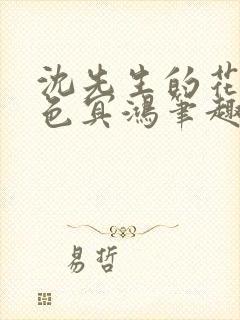 沈先生的花
色冥鸿笔趣
易哲